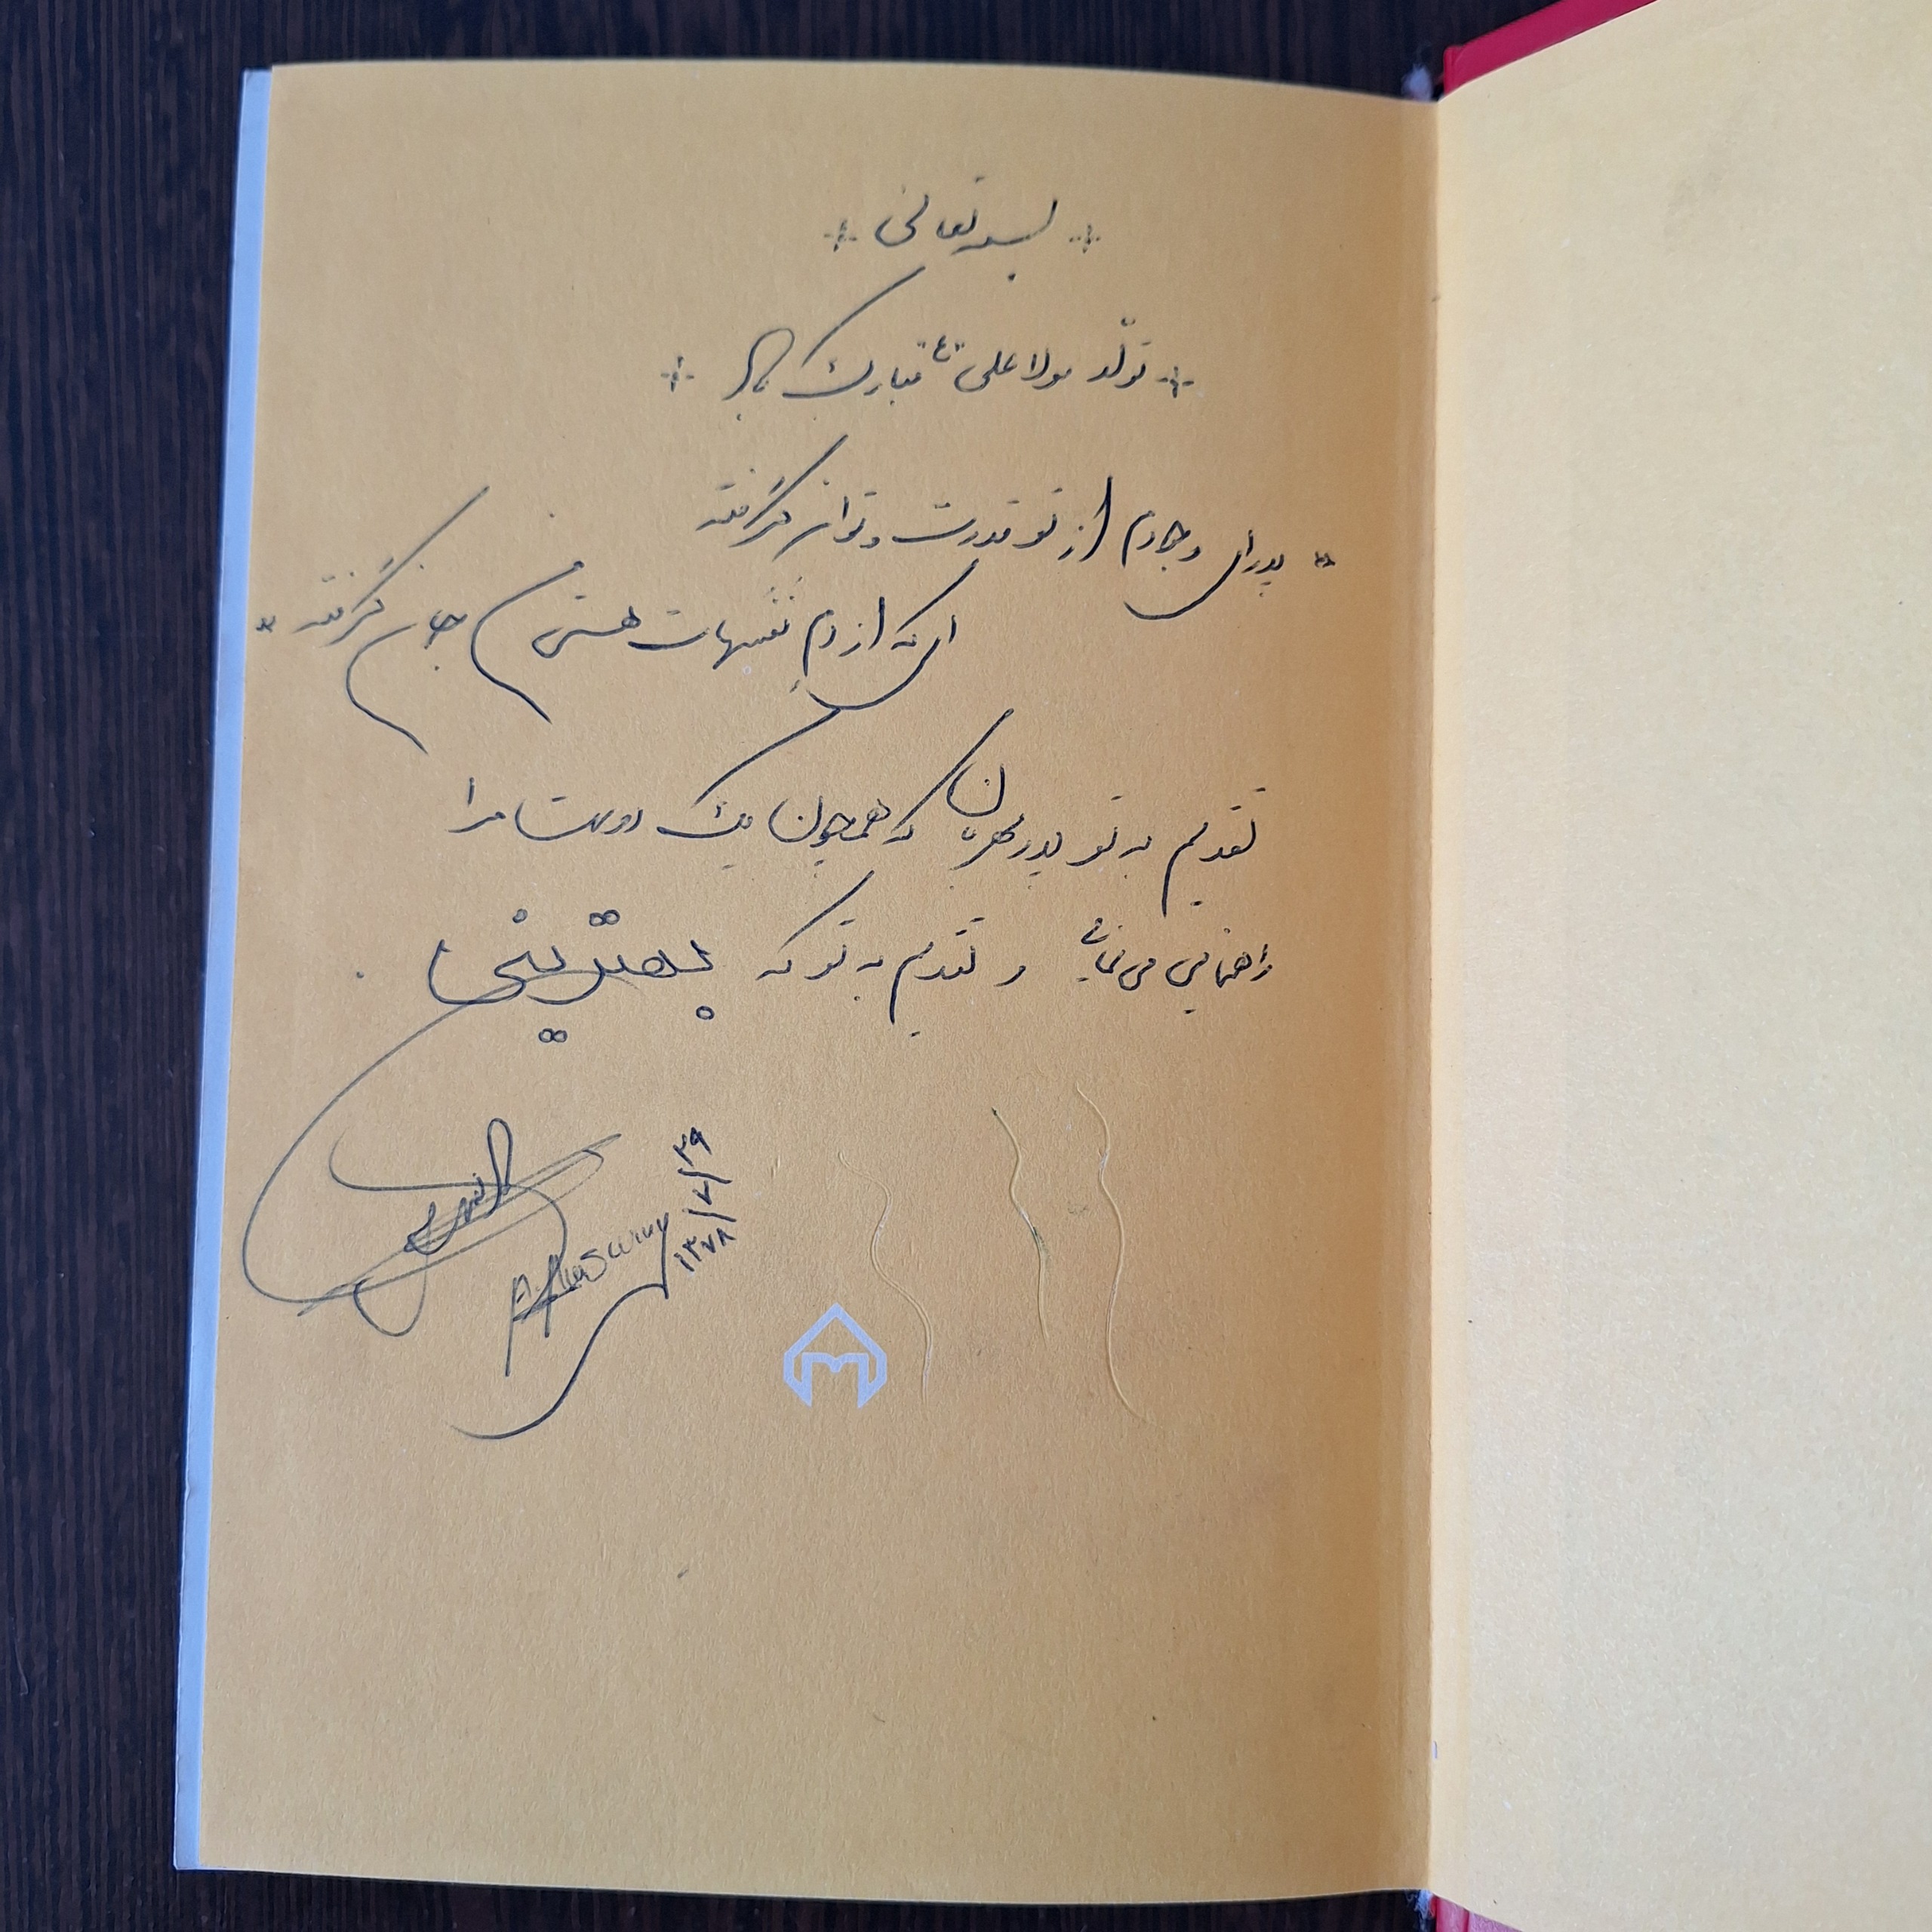 بسمه تعالی
تولّد مولا علی "ع" مبارک باد
پدر ای وجودم از تو قدرت و توان گرفته
ای که از دم نفسهات هستی من جان گرفته
تقدیم به تو پدر مهربان که همچون یک دوست مرا
راهنمایی می‌نمایی و تقدیم به تو که بهترینی
۱۳۷۸/۷/۲۹